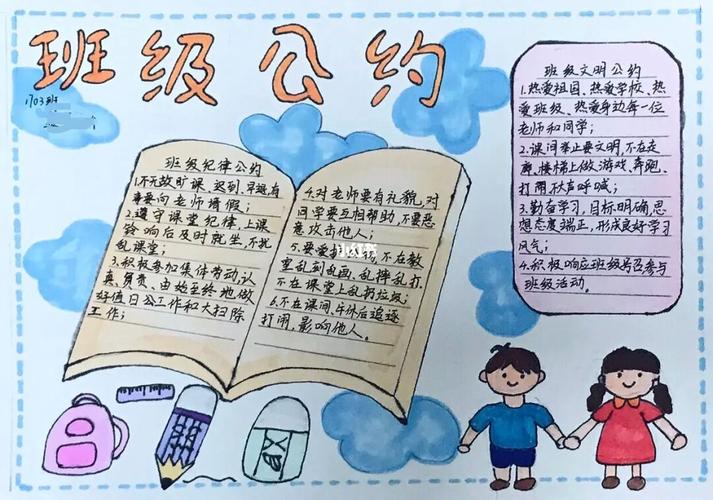 班级公约
1703班
班级纪律公约
1.不无故旷课、迟到、早退,有
事要向老师请假;
2.遵守课堂纪律,上课
铃响后及时就坐,不扰
乱课堂;
3.积极参加集体劳动,认
真、负责、由始至终地做
好值日公工作和大扫除
工作;
4.对老师要有礼貌,对
同学要互相帮助,不要恶
意攻击他人;
5.要爱护 ,不在教
室乱刻乱画,乱摔乱打,
不在课堂上乱扔垃圾;
6.不在课间、午休后追逐
打闹,影响他人。
小红书
班级文明公约
1.热爱祖国、热爱学校、热
爱班级、热爱身边每一位
老师和同学;
2.课间举止要文明,不在走
廊、楼梯上做游戏、奔跑、
打闹,不大声呼喊;
3.勤奋学习,目标明确,思
想态度端正,形成良好学习
风气;
4.积极响应班级号召参与
班级活动。